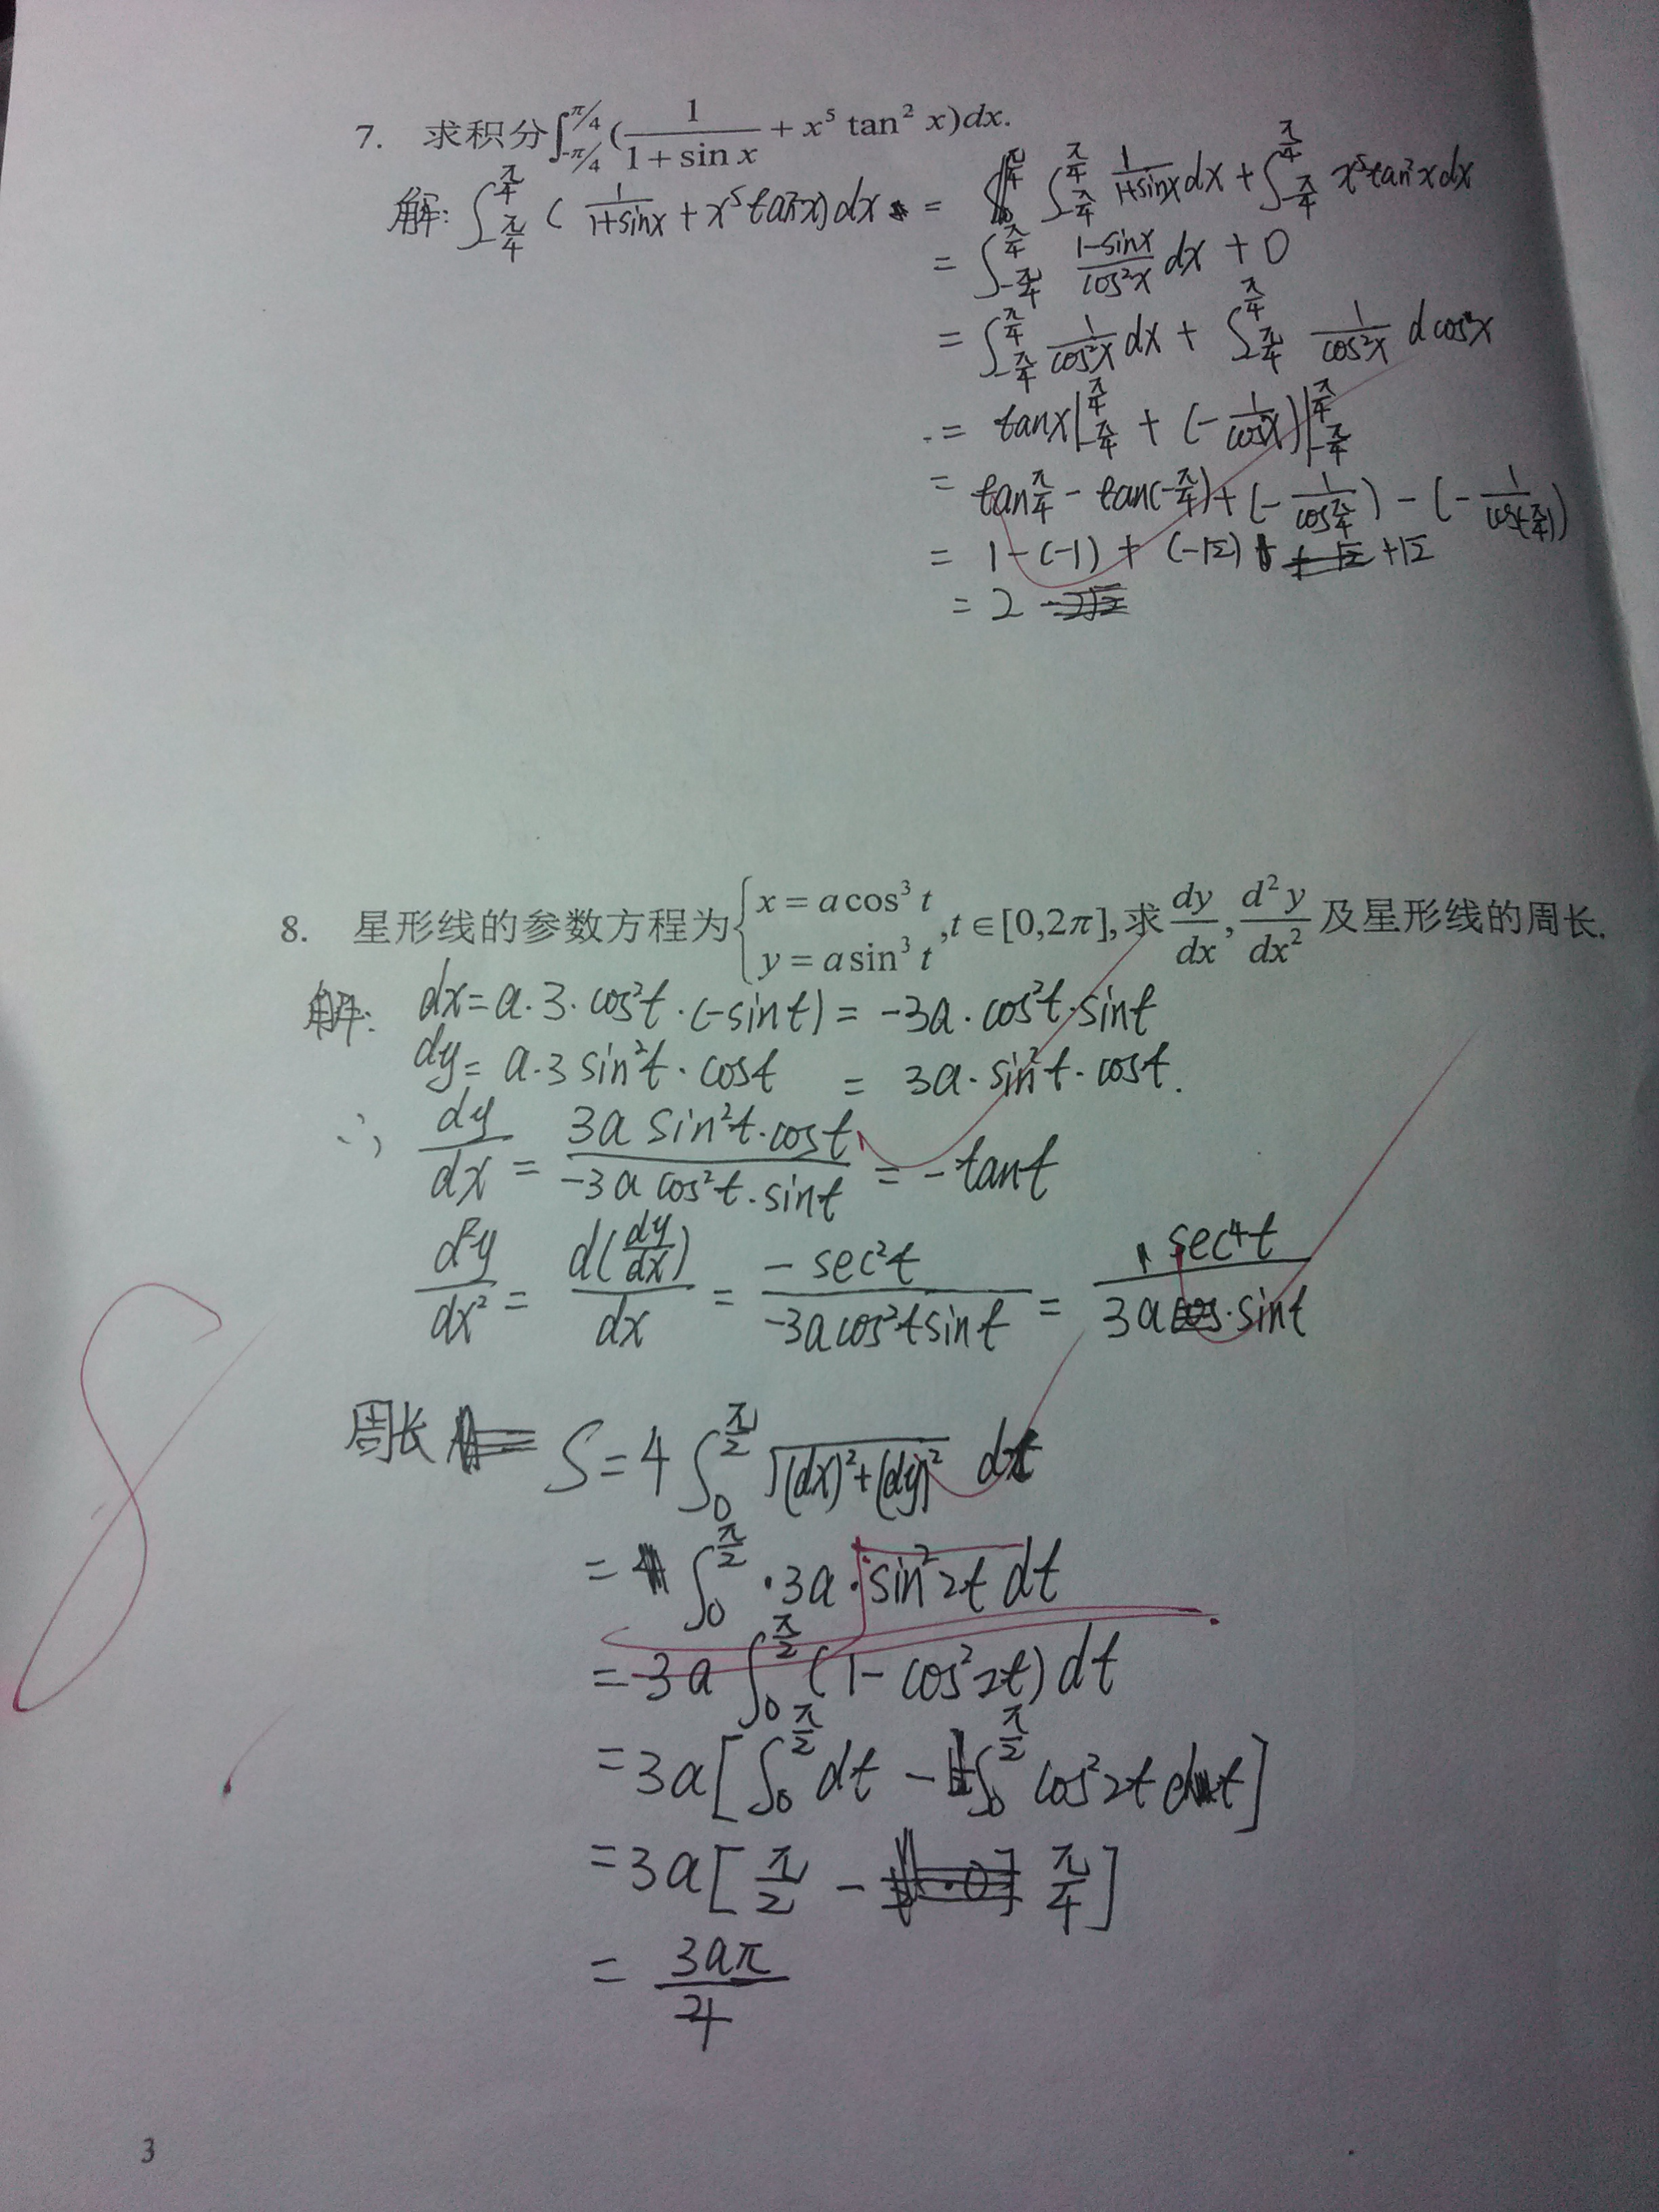 7. 求积分∫_{-π/4}^{π/4}(1/(1+sin x) + x⁵ tan² x)dx.
解: ∫_{-π/4}^{π/4} (1/(1+sinx) + x⁵tan²x)dx = ∫_{-π/4}^{π/4} 1/(1+sinx) dx + ∫_{-π/4}^{π/4} x⁵tan²xdx
= ∫_{-π/4}^{π/4} (1-sinx)/cos²x dx + 0
= ∫_{-π/4}^{π/4} 1/cos²x dx + ∫_{-π/4}^{π/4} 1/cos²x d cosx
= tanx|_{-π/4}^{π/4} + (-1/cosx)|_{-π/4}^{π/4}
= tan π/4 - tan(-π/4) + (-1/cos π/4) - (-1/cos(-π/4))
= 1-(-1) + (-√2) +√2
= 2
8. 星形线的参数方程为{x = a cos³ t, y = a sin³ t, t∈[0,2π], 求 dy/dx, d²y/dx² 及星形线的周长.
解: dx = a·3·cos²t·(-sint) = -3a·cos²t·sint
dy = a·3sin²t·cost = 3a·sin²t·cost.
∴ dy/dx = (3a sin²t·cost)/(-3a cos²t·sint) = -tant
d²y/dx² = d(dy/dx)/dx = (-sec²t)/(-3acos²tsint) = sec⁴t/(3a·sint)
周长 S = 4∫_0^{π/2} √((dx)²+(dy)²) dt
= ∫_0^{π/2} ·3a·sin²2t dt
= 3a ∫_0^{π/2} (1-cos²2t) dt
= 3a[∫_0^{π/2} dt - ∫_0^{π/2} cos²2t dt]
= 3a[π/2 - π/4]
= 3aπ/4
8
3